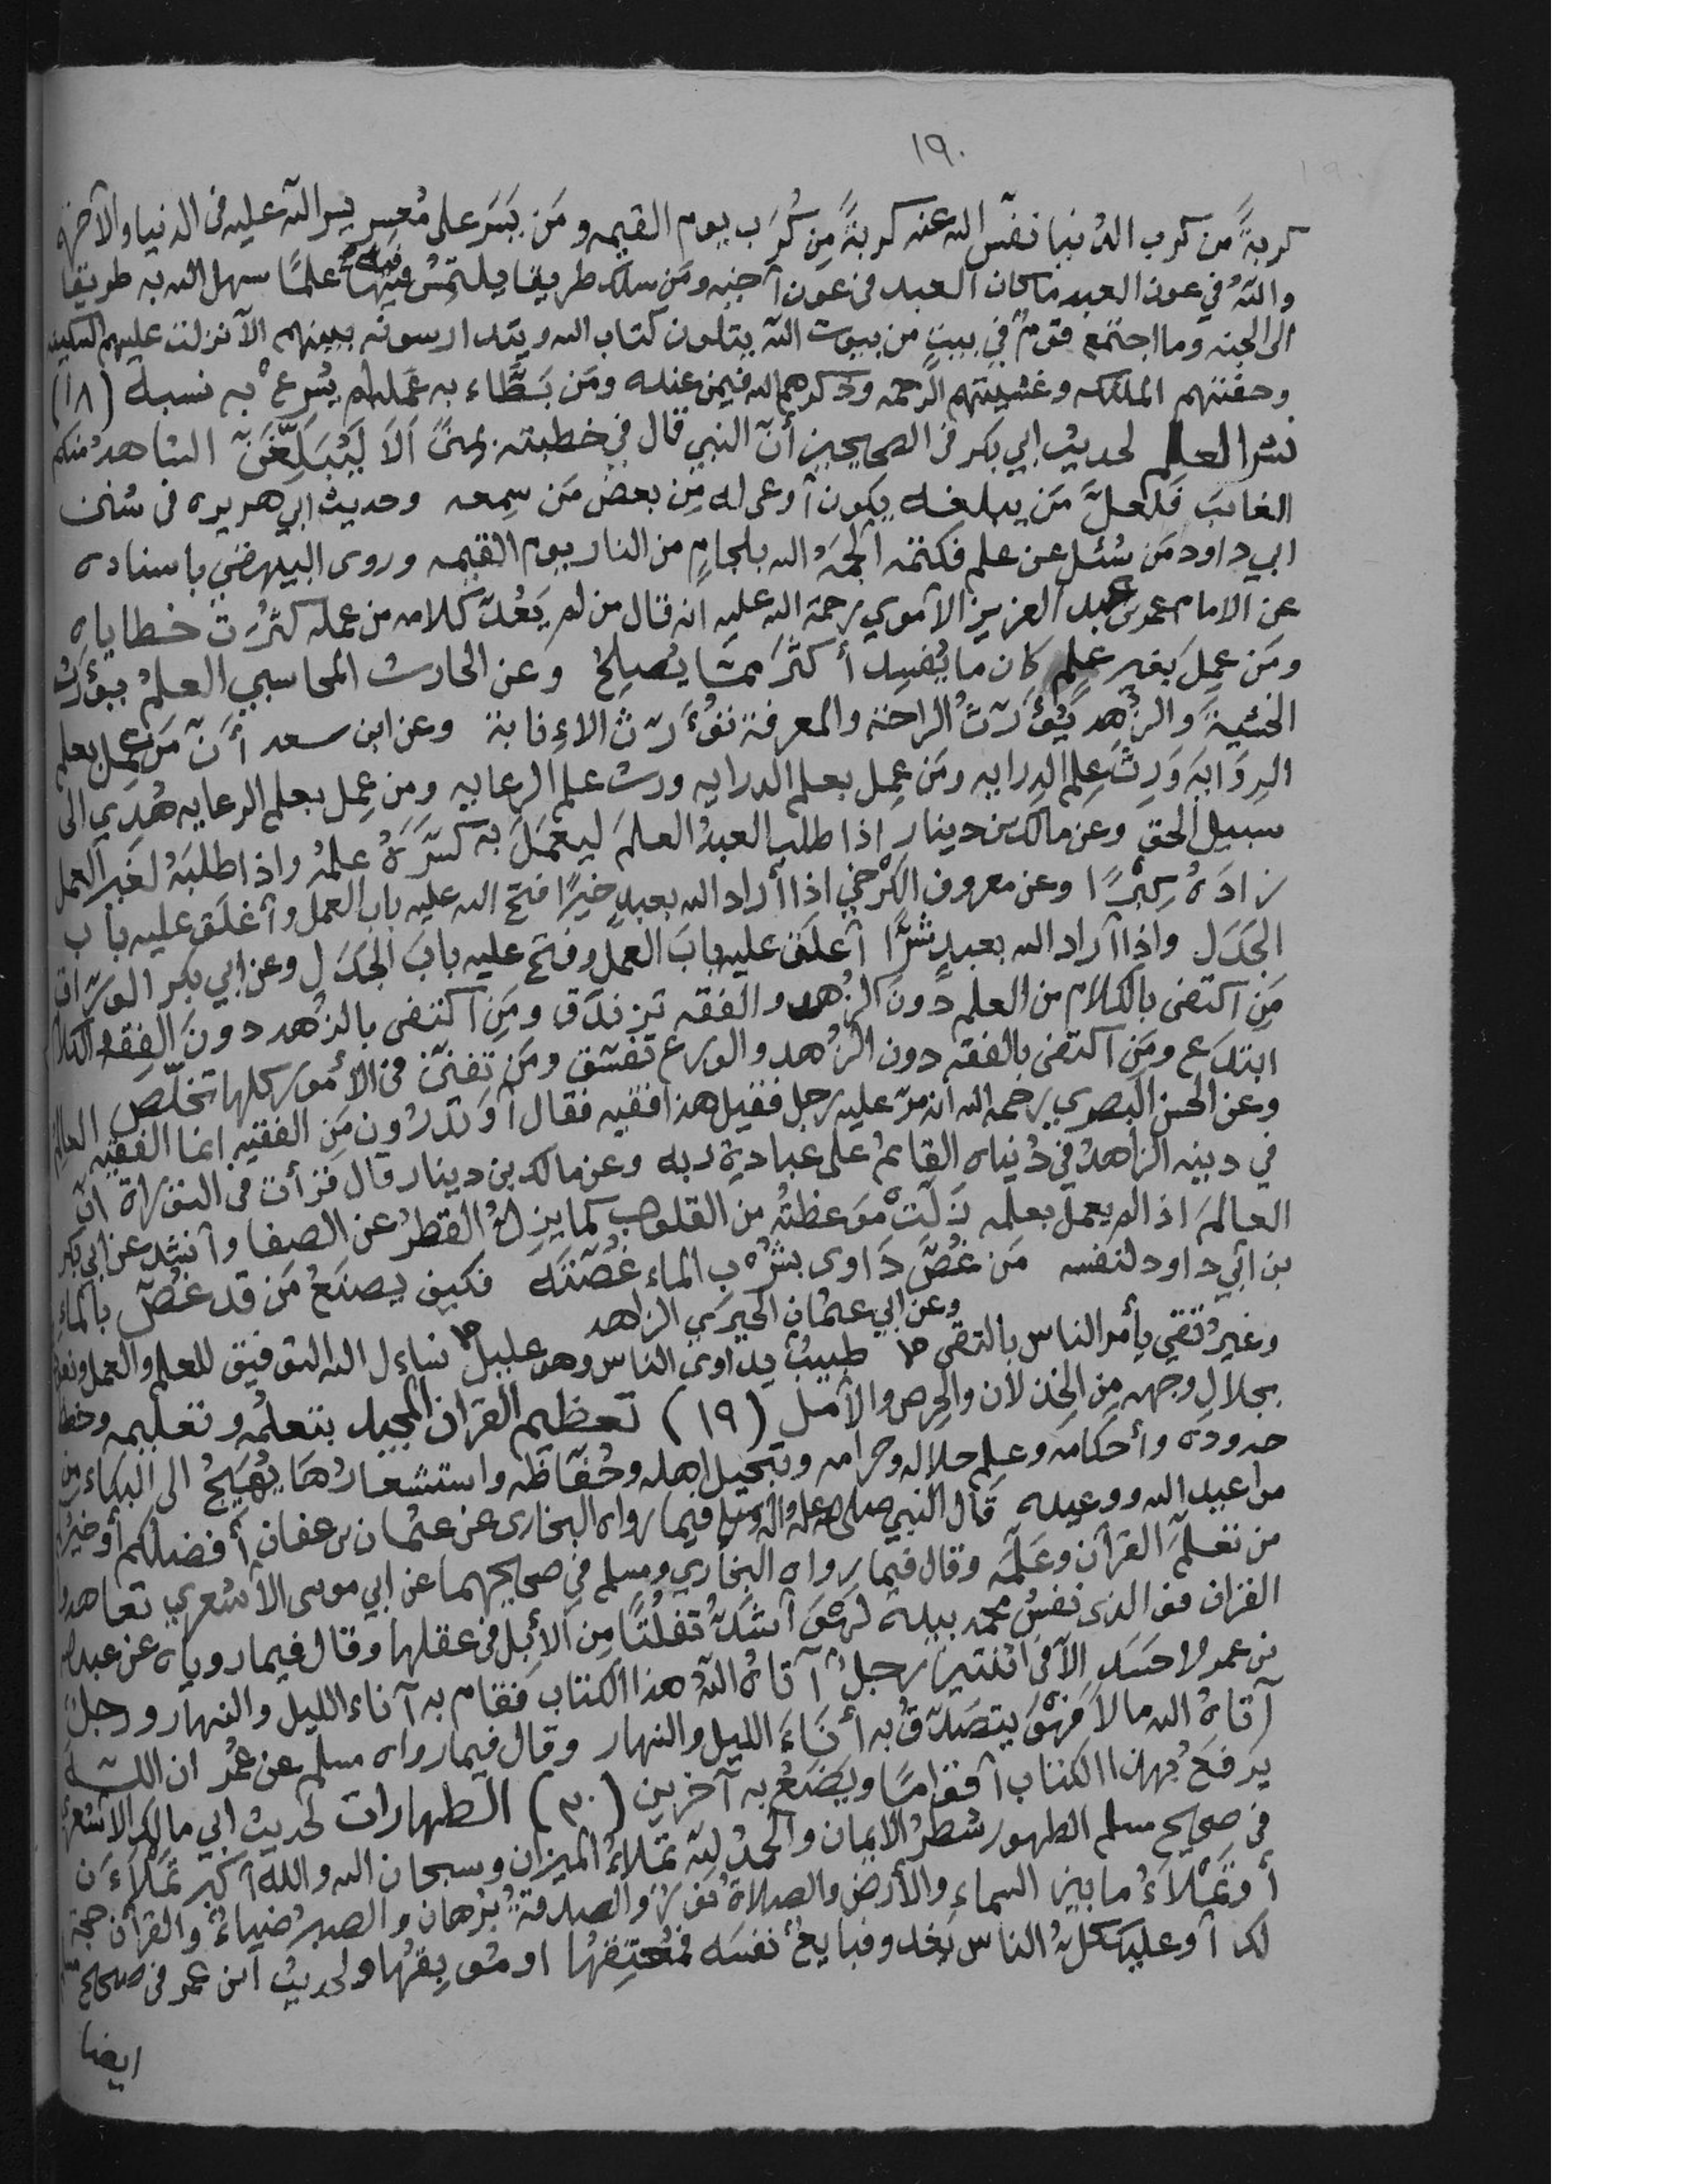 ١٩٠
كربةً من كرب الدنيا نفّس الله عنه كربةً مِن كُرَب يوم القيمه ومَن يَسَّرَ على مُعسِر يسر الله عليه فى الدنيا والآخره
واللهُ في عون العبد ما كان العبد فى عون أخيه ومَن سلك طريقا يلتمِسُ فيه علمًا سهل الله به طريقا
الى الجنه وما اجتمع قومٌ في بيتٍ من بيوت الله يتلون كتاب الله ويتدارسونه بينهم الا نزلت عليهم السكينه
وحفتهم الملئكه وغشيتهم الرحمه وذكرهم الله فيمن عنده ومَن بَطَّاء به عمله لم يُسرع به نسبه (١٨)
نشر العلم لحديث ابي بكر فى الصحيحين أنّ النبي قال في خطبته بمِنًى اَلاَ لَيُبَلِّغَنّ الشاهدُ منكم
الغائبَ فَلَعلَّ مَن يبلغه يكون أوعى له مِن بعض مَن سمعه وحديث ابي هريره فى سُنن
ابي داود مَن سُئل عن علم فكتمه ألجمَهُ الله بلجامٍ من النار يوم القيمه وروى البيهقي باسناده
عن الامام عمر بن عبد العزيز الأموي رحمة الله عليه انه قال من لم يَعُدّ كلامه من عمله كثُرَت خطاياه
ومَن عمِلَ بغير علمٍ كان ما يُفسِد أكثَرَ ممّا يُصلِحُ وعن الحارث المحاسبي العلمُ يُؤرِثُ
الخشيةَ والزُهد يُؤرّثُ الراحة والمعرفة تؤرّثُ الاِءنابة وعن ابن سعد أنّ مَن عمِل بعلم
الرِوَايَة وَرِثَ علم الدِرايه ومَن عمِل بعلم الدرايه ورث علم الرعايه ومن عمِل بعلم الرعايه هُدِي الى
سبيل الحق وعن مالك بن دينار اذا طلب العبدُ العلمَ ليعمَلَ به كسَّرَهُ علمُهُ واذا طلبَهُ لغير العمل
زادَهُ كِبْرًا وعن معروف الكَرْخي اذا أراد الله بعبدٍ خيرًا فتح الله عليه باب العمل وأغلَق عليه باب
الجَدَل واذا أراد الله بعبدٍ شرًّا أغلَق عليه بابَ العمل وفتح عليه بابَ الجَدَل وعن ابي بكر الورّاق
مَن اكتفى بالكلام من العلم دُونَ الزُهد والفقه تزندَق ومَن اكتفى بالزُهد دونَ الفِقه والكلام
ابتدَع ومَن اكتفى بالفقه دون الزُهد والورع تفسّق ومَن تفنّن فى الأمور كلها تخلّص
وعن الحسن البصري رحمه الله أنه مرّ عليه رجل فقيل هذا فقيه فقال أوَتدرُون مَنِ الفقيه انما الفقيه العالم
في دينه الزاهدُ في دُنياه القائمُ على عبادة ربه وعن مالك بن دينار قال قرأت فى التوراة انّ
العالمَ اذا لم يعمل بعلمه زَلَّتْ مَوعظتُه من القلوب كما يزِلُّ القَطرُ عن الصفا وأنشد عن ابي بكر
بن ابي داود لنفسه مَن غُصَّ دَاوى بشُرْبِ الماء غُصّتَه فكيف يصنَعُ مَن قد غُصّ بالماءِ
وعن ابي عثمان الحيري الزاهد
وغيرُ تقي يأمر الناس بالتقى طبيبٌ يداوي الناس وهو عليل نساءل الله التوفيق للعلم والعمل ونعوذ
بجلال وجهه مِن الخذلان والحِرص والأمل (١٩) تعظيم القرآن المجيد بتعلّمه وتعليمه وحفظ
حدوده وأحكامه وعلم حلاله وحرامه وتبجيل اهله وحُفّاظه واستشعار ما يُهَيّجُ الى البكاء من
مواعيد الله ووعيده قال النبي صلى الله عليه وآله وسلم فيما رواه البخارى عن عثمان بن عفان أفضلكم أو خيركم
من تعلّمَ القرآن وعَلّمَه وقال فيما رواه البخاري ومسلم في صحيحهما عن ابي موسى الأشعري تعاهدوا
القرآن فوالذى نفسُ محمد بيده لَهُوَ أشدُّ تفلُّتًا مِن الأبل فى عقلها وقال فيما روياه عن عبدالله
بن عمر لا حَسَد الاّ فى اثنتين رجلٌ آتاهُ اللهُ هذا الكتاب فقام به آناء الليل والنهار ورجلٌ
آتاهُ الله مالاً فهُوَ يتصَدّقُ به أناءَ الليل والنهار وقال فيما رواه مسلم عن عُمر ان الله
يَرفَعُ بهذا الكتاب أقوامًا ويَضَعُ به آخرين (٢٠) الطهارات لحديث ابي مالك الأشعري
فى صحيح مسلم الطهور شطرُ الايمان والحمدُ لله تملاءُ الميزان وسبحان الله والله أكبر تملاءَن
أو تملاَءُ ما بين السماءِ والأرض والصلاةُ نورٌ والصدقةُ بُرهان والصبرُ ضياءٌ والقرآن حجة
لك أو عليك كلُّ الناس يَغدو فبايعٌ نفسَه فمُعتِقُها او مُوبِقُها ولحديث ابن عمر فى صحيح
ايضا